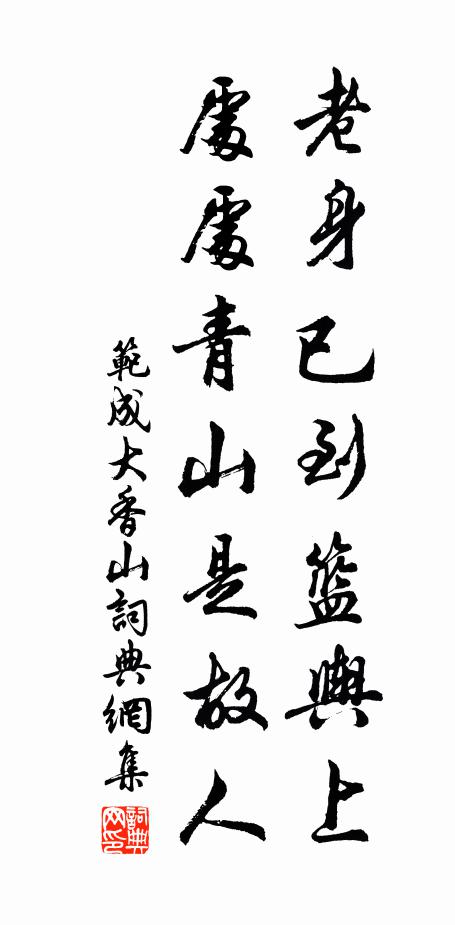 老身已到籃輿上
處處青山是故人
範成大香山詞典網集
詞典
网印